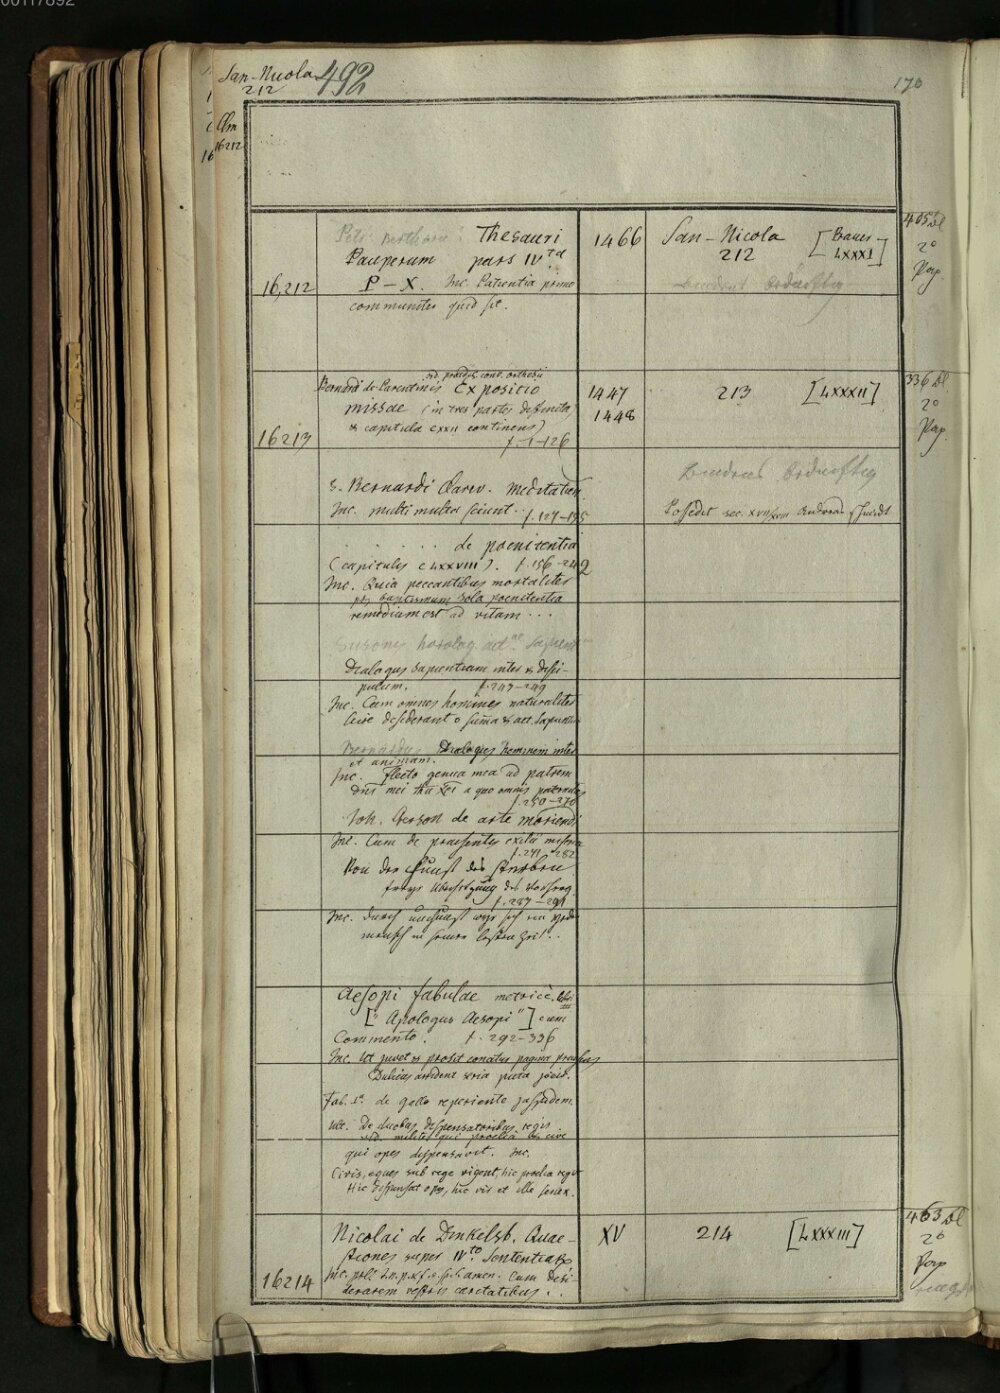 00117892
San-Nicola 492
212
170
Clm
16212
Petr. Berthorii: Thesauri
Pauperum pars IVta
16,212 P – X. Inc. Patientia primo
communiter quid sit.
1466
San-Nicola [Bauer
212 LXXXI]
405 Bl
2°
Pap.
ord. praedic. conv. orthesii
Bernardi de Parentinis Expositio
missae (in tres partes distincta
& capitula CXXII continens)
16213 f. 1–126
1447
1448
213 [LXXXII]
336 Bl
2°
Pap.
S. Bernardi Clarev. Meditationes
Inc. multi multa sciunt . . f. 127–155
Possedit sec. XVII/XVIII Andreas
. . . . . de poenitentia
(capitulis LXXVIII). f. 156–242
Inc. Quia peccantibus mortaliter
post baptismum sola poenitentia
remedium est ad vitam . . .
Susonis horolog. aet.ae Sapient.
Dialogus Sapientiam inter & disci-
pulum. f. 243–249
Inc. Cum omnes homines naturaliter
scire desiderant o summa & aet. Sapientia
Bernardus Dialogus hominem inter
et animam.
Inc. Flecto genua mea ad patrem
dni mei Ihu XPI a quo omnis paternitas
f. 250–270
Joh. Gerson de arte moriendi
Inc. Cum de praesentis exilii miseria
f. 271–282
Von der Kunst des Sterbens
freye Übersetzung des Vorherg.
f. 287–291
Inc. durch
mensch in seiner lesten Zeit . .
Aesopi fabulae metrice. libri III
["Apologus Aesopi"] cum
Commento. f. 292–336
Inc. Ut juvet & prosit conatur pagina praesens
Dulcius arrident seria picta jocis.
Fab. 1a. de gallo reperiente jaspidem.
ult. De duobus dispensatoribus regis
sed. milite qui proelia & cive
qui opes dispensavit. Inc.
Civis, eques sub rege vigent, hic proelia regis
Hic dispensat opes, hic vir et ille senex.
Nicolai de Dinkelsb. Quae-
stiones super IVto Sententiarum
16214 Inc.
derarem vestris caritatibus . .
XV
214 [LXXXIII]
463 Bl
2°
Pap